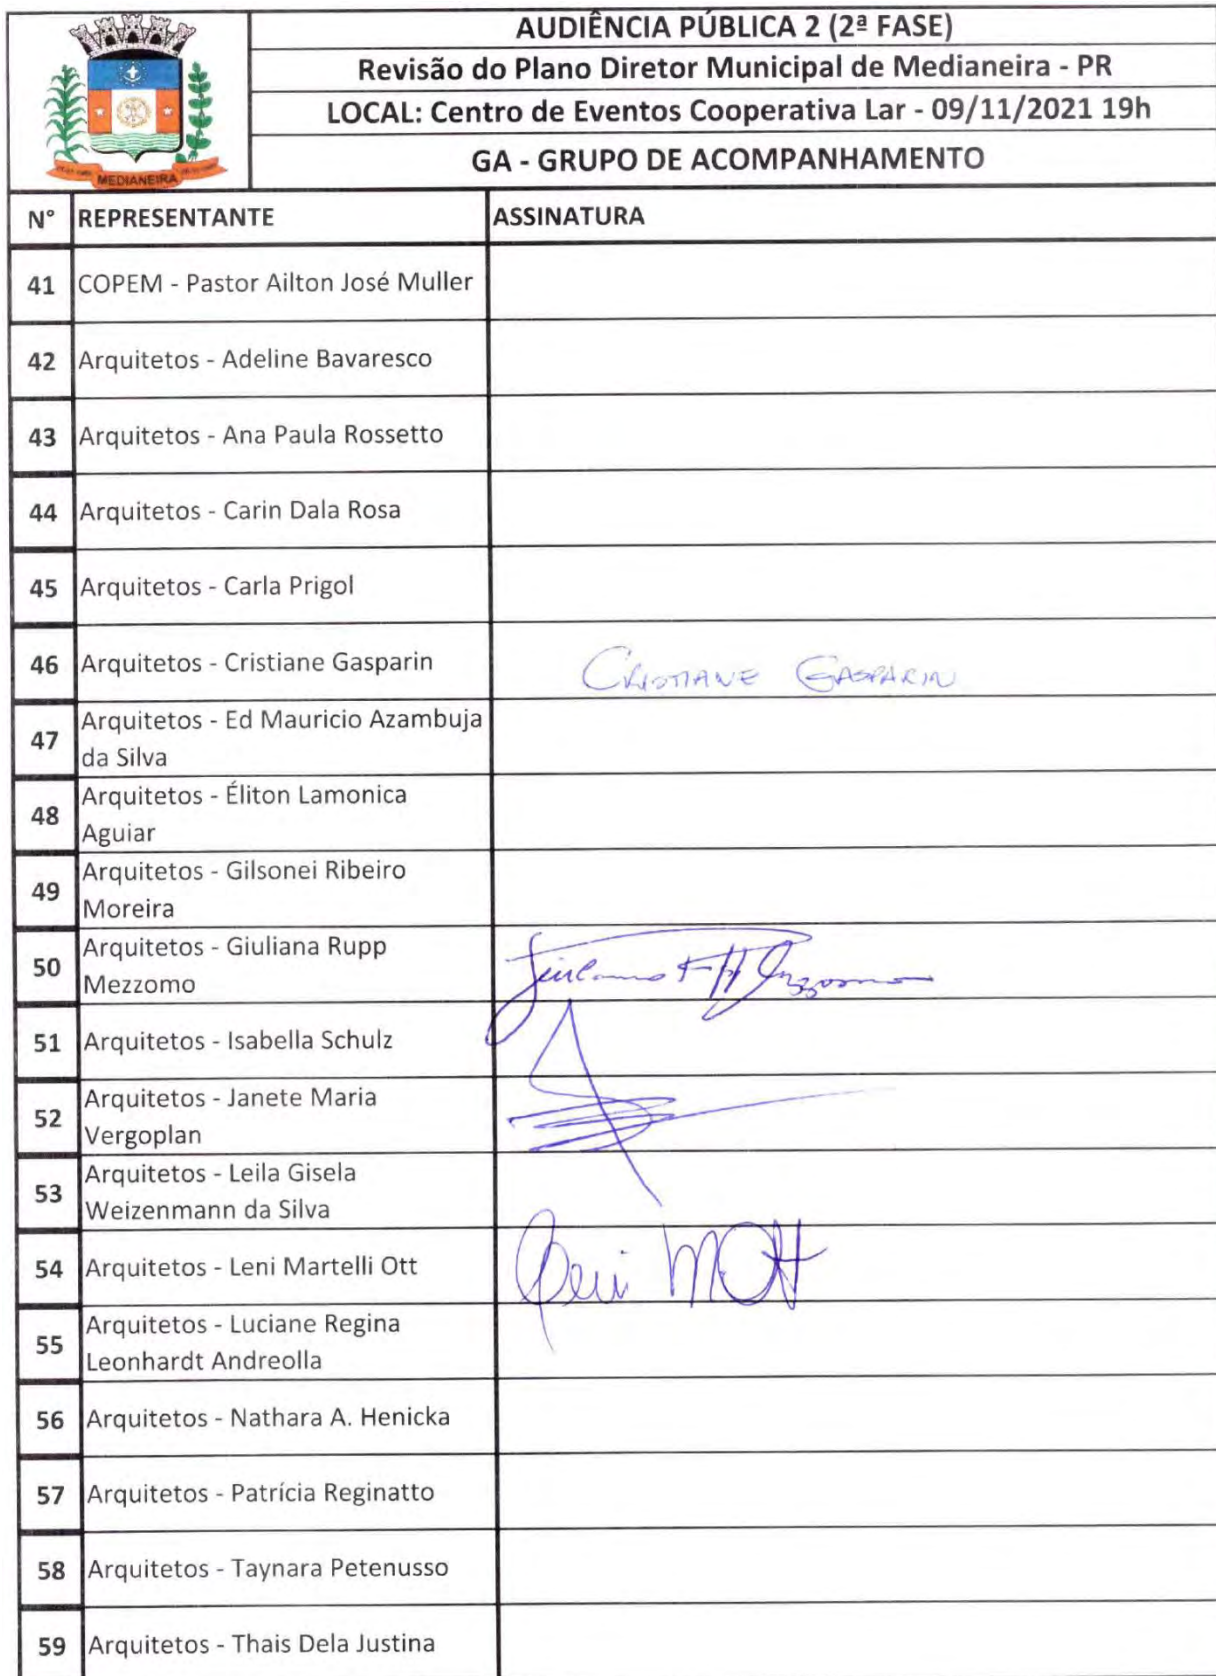 AUDIÊNCIA PÚBLICA 2 (2ª FASE)
Revisão do Plano Diretor Municipal de Medianeira - PR
LOCAL: Centro de Eventos Cooperativa Lar - 09/11/2021 19h
GA - GRUPO DE ACOMPANHAMENTO
MEDIANEIRA
N° REPRESENTANTE ASSINATURA
41 COPEM - Pastor Ailton José Muller
42 Arquitetos - Adeline Bavaresco
43 Arquitetos - Ana Paula Rossetto
44 Arquitetos - Carin Dala Rosa
45 Arquitetos - Carla Prigol
46 Arquitetos - Cristiane Gasparin CRISTIANE GASPARIN
47 Arquitetos - Ed Mauricio Azambuja
da Silva
48 Arquitetos - Éliton Lamonica
Aguiar
49 Arquitetos - Gilsonei Ribeiro
Moreira
50 Arquitetos - Giuliana Rupp
Mezzomo
51 Arquitetos - Isabella Schulz
52 Arquitetos - Janete Maria
Vergoplan
53 Arquitetos - Leila Gisela
Weizenmann da Silva
54 Arquitetos - Leni Martelli Ott Leni M Ott
55 Arquitetos - Luciane Regina
Leonhardt Andreolla
56 Arquitetos - Nathara A. Henicka
57 Arquitetos - Patrícia Reginatto
58 Arquitetos - Taynara Petenusso
59 Arquitetos - Thais Dela Justina